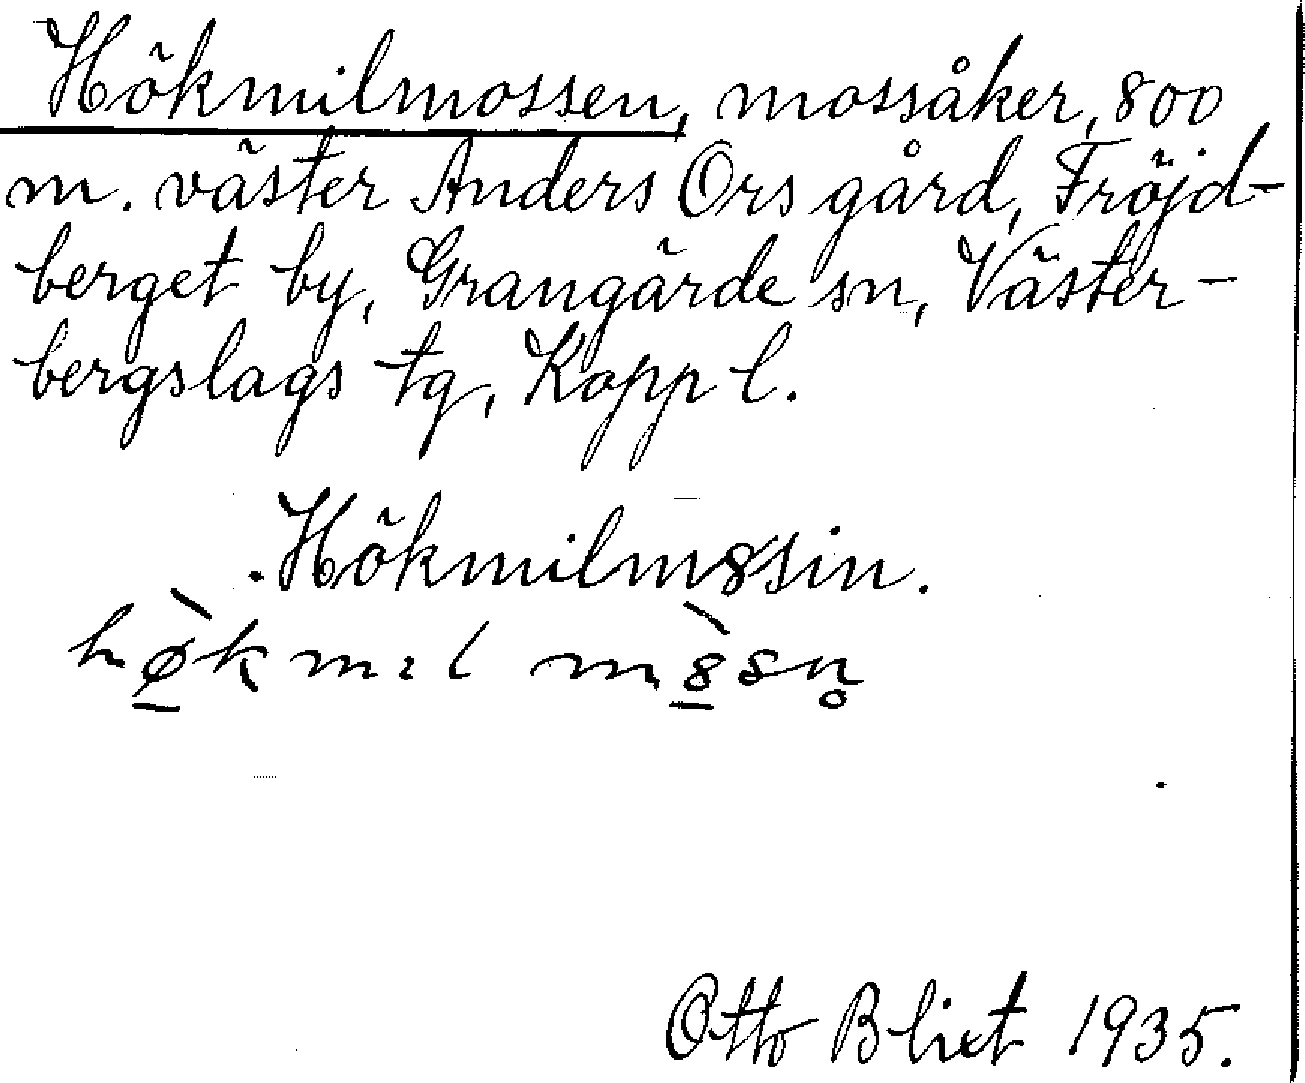 Hökmilmossen, mossåker, 800
m. väster Anders Ors gård, Fröjd-
berget by, Grangärde sn, Väster-
bergslags tg, Kopp l.
Hökmilm8sin.
hø̲̀kmıl m8̲̀sn̥
Otto Blixt 1935.